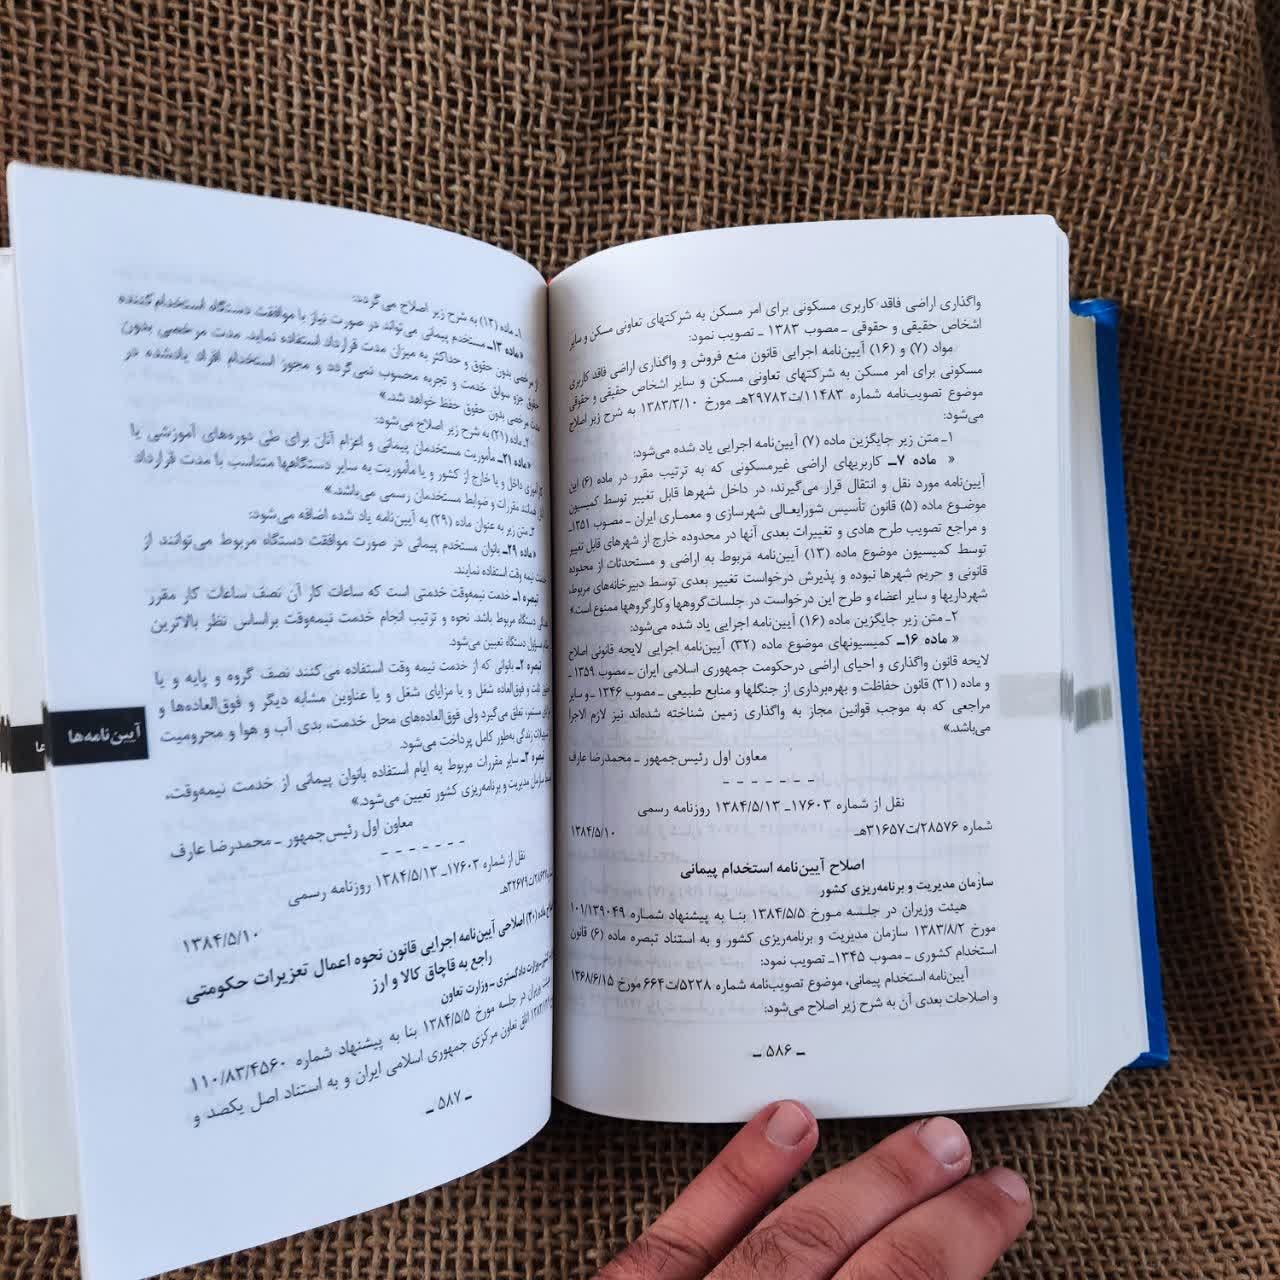 واگذاری اراضی فاقد کاربری مسکونی برای امر مسکن به شرکتهای تعاونی مسکن و سایر
اشخاص حقیقی و حقوقی ـ مصوب ۱۳۸۳ ـ تصویب نمود:
مواد (۷) و (۱۶) آیین‌نامه اجرایی قانون منع فروش و واگذاری اراضی فاقد کاربری
مسکونی برای امر مسکن به شرکتهای تعاونی مسکن و سایر اشخاص حقیقی و حقوقی
موضوع تصویب‌نامه شماره ۱۱۴۸۳/ت۲۹۷۸۲هـ مورخ ۱۳۸۳/۳/۱۰ به شرح زیر اصلاح
می‌شود:
۱ـ متن زیر جایگزین ماده (۷) آیین‌نامه اجرایی یاد شده می‌شود:
« ماده ۷ـ کاربریهای اراضی غیرمسکونی که به ترتیب مقرر در ماده (۶) این
آیین‌نامه مورد نقل و انتقال قرار می‌گیرند، در داخل شهرها قابل تغییر توسط کمیسیون
موضوع ماده (۵) قانون تأسیس شورایعالی شهرسازی و معماری ایران ـ مصوب ۱۳۵۱ـ
و مراجع تصویب طرح هادی و تغییرات بعدی آنها در محدوده خارج از شهرهای قابل تغییر
توسط کمیسیون موضوع ماده (۱۳) آیین‌نامه مربوط به اراضی و مستحدثات از محدوده
قانونی و حریم شهرها نبوده و پذیرش درخواست تغییر بعدی توسط دبیرخانه‌های مربوط،
شهرداریها و سایر اعضاء و طرح این درخواست در جلسات گروهها و کارگروهها ممنوع است.»
۲ـ متن زیر جایگزین ماده (۱۶) آیین‌نامه اجرایی یاد شده می‌شود:
« ماده ۱۶ـ کمیسیونهای موضوع ماده (۳۲) آیین‌نامه اجرایی لایحه قانونی اصلاح
لایحه قانون واگذاری و احیای اراضی درحکومت جمهوری اسلامی ایران ـ مصوب ۱۳۵۹ ـ
و ماده (۳۱) قانون حفاظت و بهره‌برداری از جنگلها و منابع طبیعی ـ مصوب ۱۳۴۶ ـ و سایر
مراجعی که به موجب قوانین مجاز به واگذاری زمین شناخته شده‌اند نیز لازم الاجرا
می‌باشد.»
معاون اول رئیس‌جمهور ـ محمدرضا عارف
- - - - - - -
نقل از شماره ۱۷۶۰۳ـ ۱۳۸۴/۵/۱۳ روزنامه رسمی
شماره ۲۸۵۷۶/ت۳۱۶۵۷هـ ۱۳۸۴/۵/۱۰
اصلاح آیین‌نامه استخدام پیمانی
سازمان مدیریت و برنامه‌ریزی کشور
هیئت وزیران در جلسه مورخ ۱۳۸۴/۵/۵ بنا به پیشنهاد شماره ۱۰۱/۱۳۹۰۴۹
مورخ ۱۳۸۳/۸/۲ سازمان مدیریت و برنامه‌ریزی کشور و به استناد تبصره ماده (۶) قانون
استخدام کشوری ـ مصوب ۱۳۴۵ـ تصویب نمود:
آیین‌نامه استخدام پیمانی، موضوع تصویب‌نامه شماره ۵۲۲۸/ت۶۶۴ مورخ ۱۳۶۸/۶/۱۵
و اصلاحات بعدی آن به شرح زیر اصلاح می‌شود:
ـ ۵۸۶ ـ
۱ـ ماده (۱۳) به شرح زیر اصلاح می‌گردد:
«ماده ۱۳ـ مستخدم پیمانی می‌تواند در صورت نیاز با موافقت دستگاه استخدام کننده
از مرخصی بدون حقوق و حداکثر به میزان مدت قرارداد استفاده نماید. مدت مرخصی بدون
حقوق جزو سوابق خدمت و تجربه محسوب نمی‌گردد و مجوز استخدام افراد یادشده در
مدت مرخصی بدون حقوق حفظ خواهد شد.»
۲ـ ماده (۲۱) به شرح زیر اصلاح می‌شود:
«ماده ۲۱ـ مأموریت مستخدمان پیمانی و اعزام آنان برای طی دوره‌های آموزشی یا
کارآموزی داخل و یا خارج از کشور و یا مأموریت به سایر دستگاهها متناسب با مدت قرارداد
مقررات و ضوابط مستخدمان رسمی می‌باشد.»
۳ـ متن زیر به عنوان ماده (۲۹) به آیین‌نامه یاد شده اضافه می‌شود:
«ماده ۲۹ـ بانوان مستخدم پیمانی در صورت موافقت دستگاه مربوط می‌توانند از
خدمت نیمه وقت استفاده نمایند.
تبصره ۱ـ خدمت نیمه‌وقت خدمتی است که ساعات کار آن نصف ساعات کار مقرر
دستگاه مربوط باشد. نحوه و ترتیب انجام خدمت نیمه‌وقت براساس نظر بالاترین
مسؤول دستگاه تعیین می‌شود.
تبصره ۲ـ بانوانی که از خدمت نیمه وقت استفاده می‌کنند نصف گروه و پایه و یا
حقوق ثابت و فوق‌العاده شغل و یا مزایای شغل و یا عناوین مشابه دیگر و فوق‌العاده‌ها و
مستمر، تعلق می‌گیرد ولی فوق‌العاده‌های محل خدمت، بدی آب و هوا و محرومیت
تسهیلات زندگی به‌طور کامل پرداخت می‌شود.
تبصره ۳ـ سایر مقررات مربوط به ایام استفاده بانوان پیمانی از خدمت نیمه‌وقت،
سازمان مدیریت و برنامه‌ریزی کشور تعیین می‌شود.»
معاون اول رئیس‌جمهور ـ محمدرضا عارف
- - - - - - -
نقل از شماره ۱۷۶۰۳ـ ۱۳۸۴/۵/۱۳ روزنامه رسمی
ت۳۲۶۷۹هـ
۱۳۸۴/۵/۱۰
ماده (۲۰) اصلاحی آیین‌نامه اجرایی قانون نحوه اعمال تعزیرات حکومتی
راجع به قاچاق کالا و ارز
وزارت دادگستری ـ وزارت تعاون
وزیران در جلسه مورخ ۱۳۸۴/۵/۵ بنا به پیشنهاد شماره ۱۱۰/۸۳/۴۵۶۰
اتاق تعاون مرکزی جمهوری اسلامی ایران و به استناد اصل یکصد و
ـ ۵۸۷ ـ
آیین‌نامه‌ها
ها